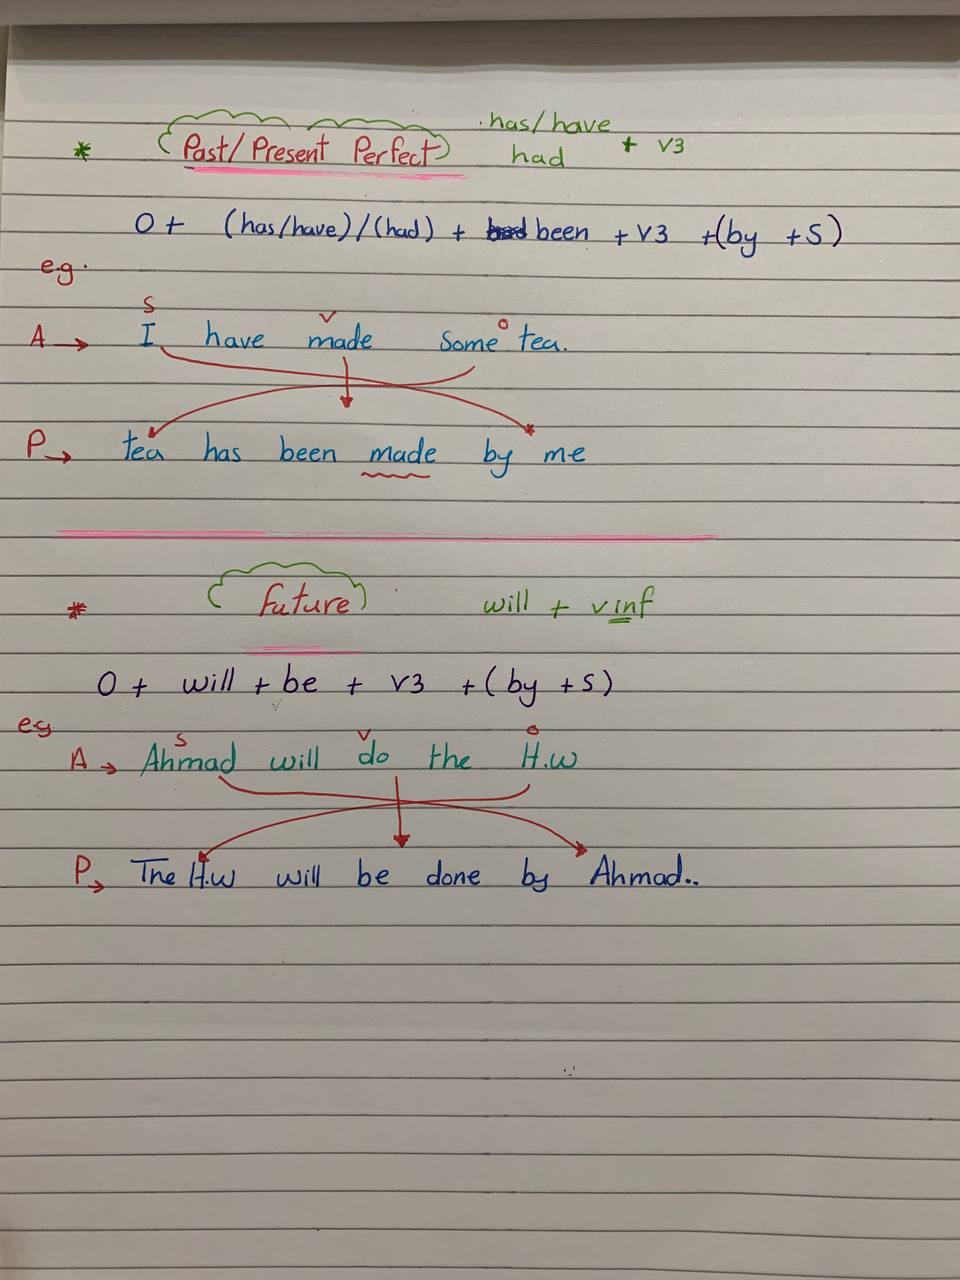 has/have
* (Past/Present Perfect) had + v3
O + (has/have)/(had) + been + v3 + (by + S)
e.g.
S v o
A → I have made some tea.
P → tea has been made by me
* (future) will + vinf
O + will + be + v3 + (by + S)
eg
S v o
A → Ahmad will do the H.w
P → The H.w will be done by Ahmad..